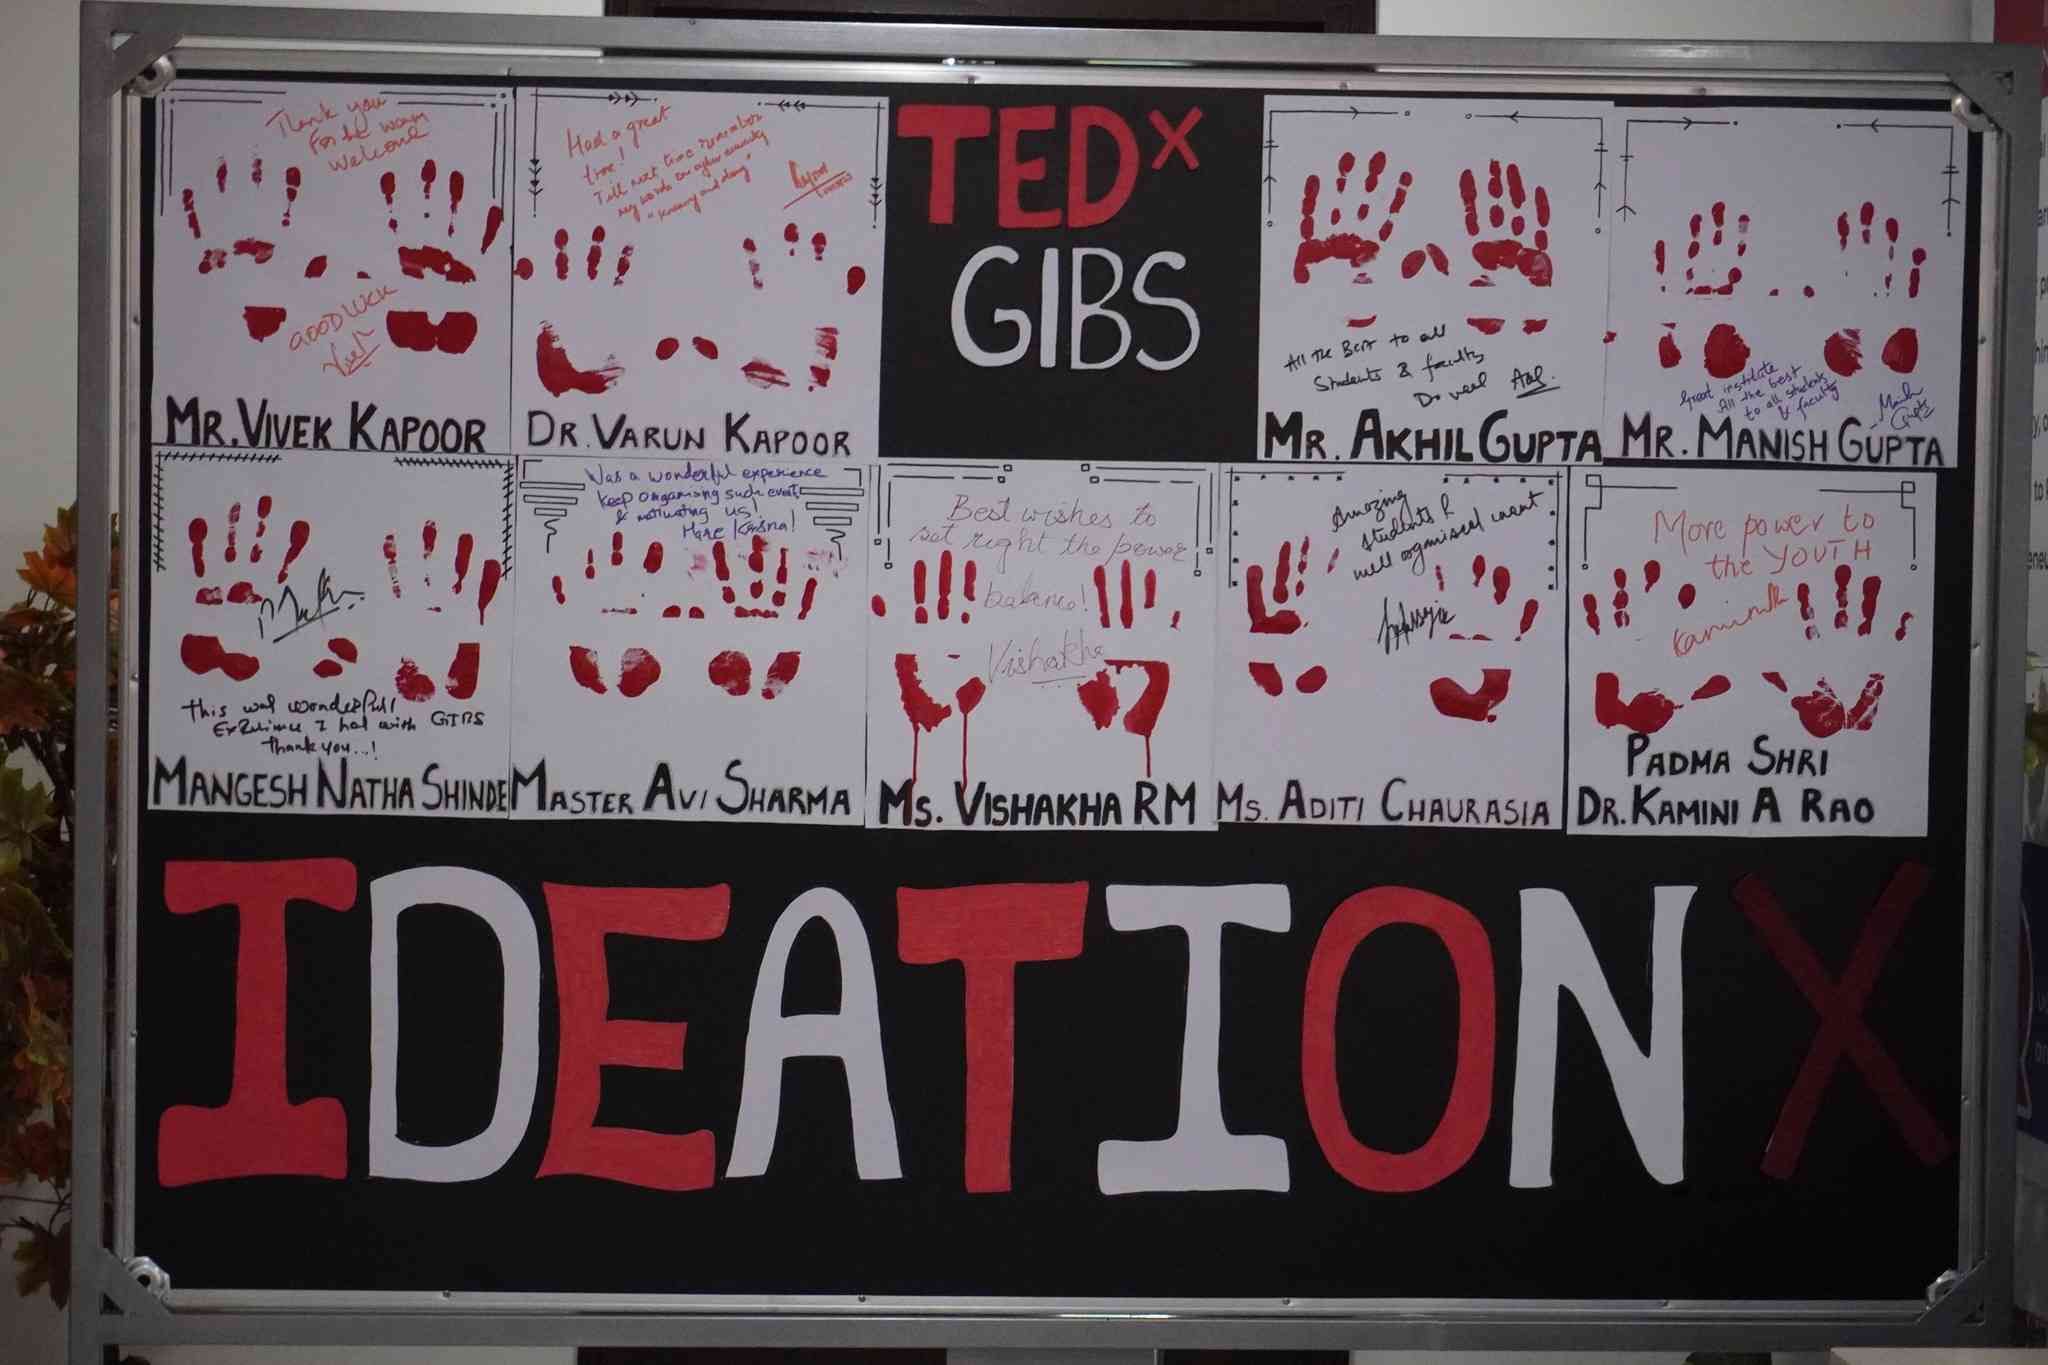 Thank you
For the warm
Welcome
GOOD LUCK
MR. VIVEK KAPOOR
Had a great
time!
Till next time remember
my words on cyber security
"Knowing and doing"
DR. VARUN KAPOOR
TEDX
GIBS
All the Best to all
Students & faculty
Do well
MR. AKHIL GUPTA
Great institute
All the best
to all students
& faculty
Manish
Gupta
MR. MANISH GUPTA
This was wonderful!
Experience I had with GIBS
Thank you...!
MANGESH NATHA SHINDE
Was a wonderful experience
Keep organising such events
& motivating us!
Hare Krsna!
MASTER AVI SHARMA
Best wishes to
set right the power
balance!
Vishakha
MS. VISHAKHA RM
Amazing
students &
well organised event
MS. ADITI CHAURASIA
More power to
the YOUTH
PADMA SHRI
DR. KAMINI A RAO
IDEATION X